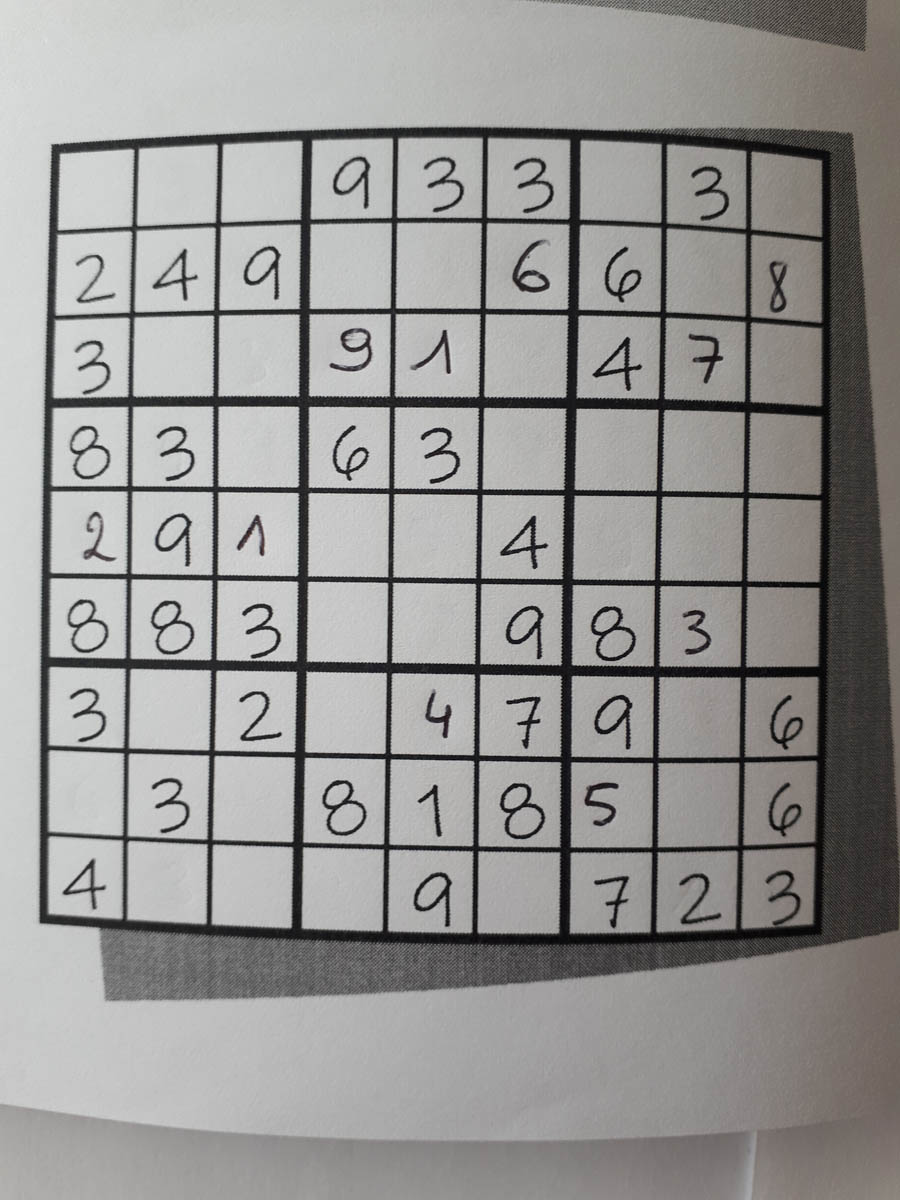 9 3 3 3
2 4 9 6 6 8
3 9 1 4 7
8 3 6 3
2 9 1 4
8 8 3 9 8 3
3 2 4 7 9 6
3 8 1 8 5 6
4 9 7 2 3